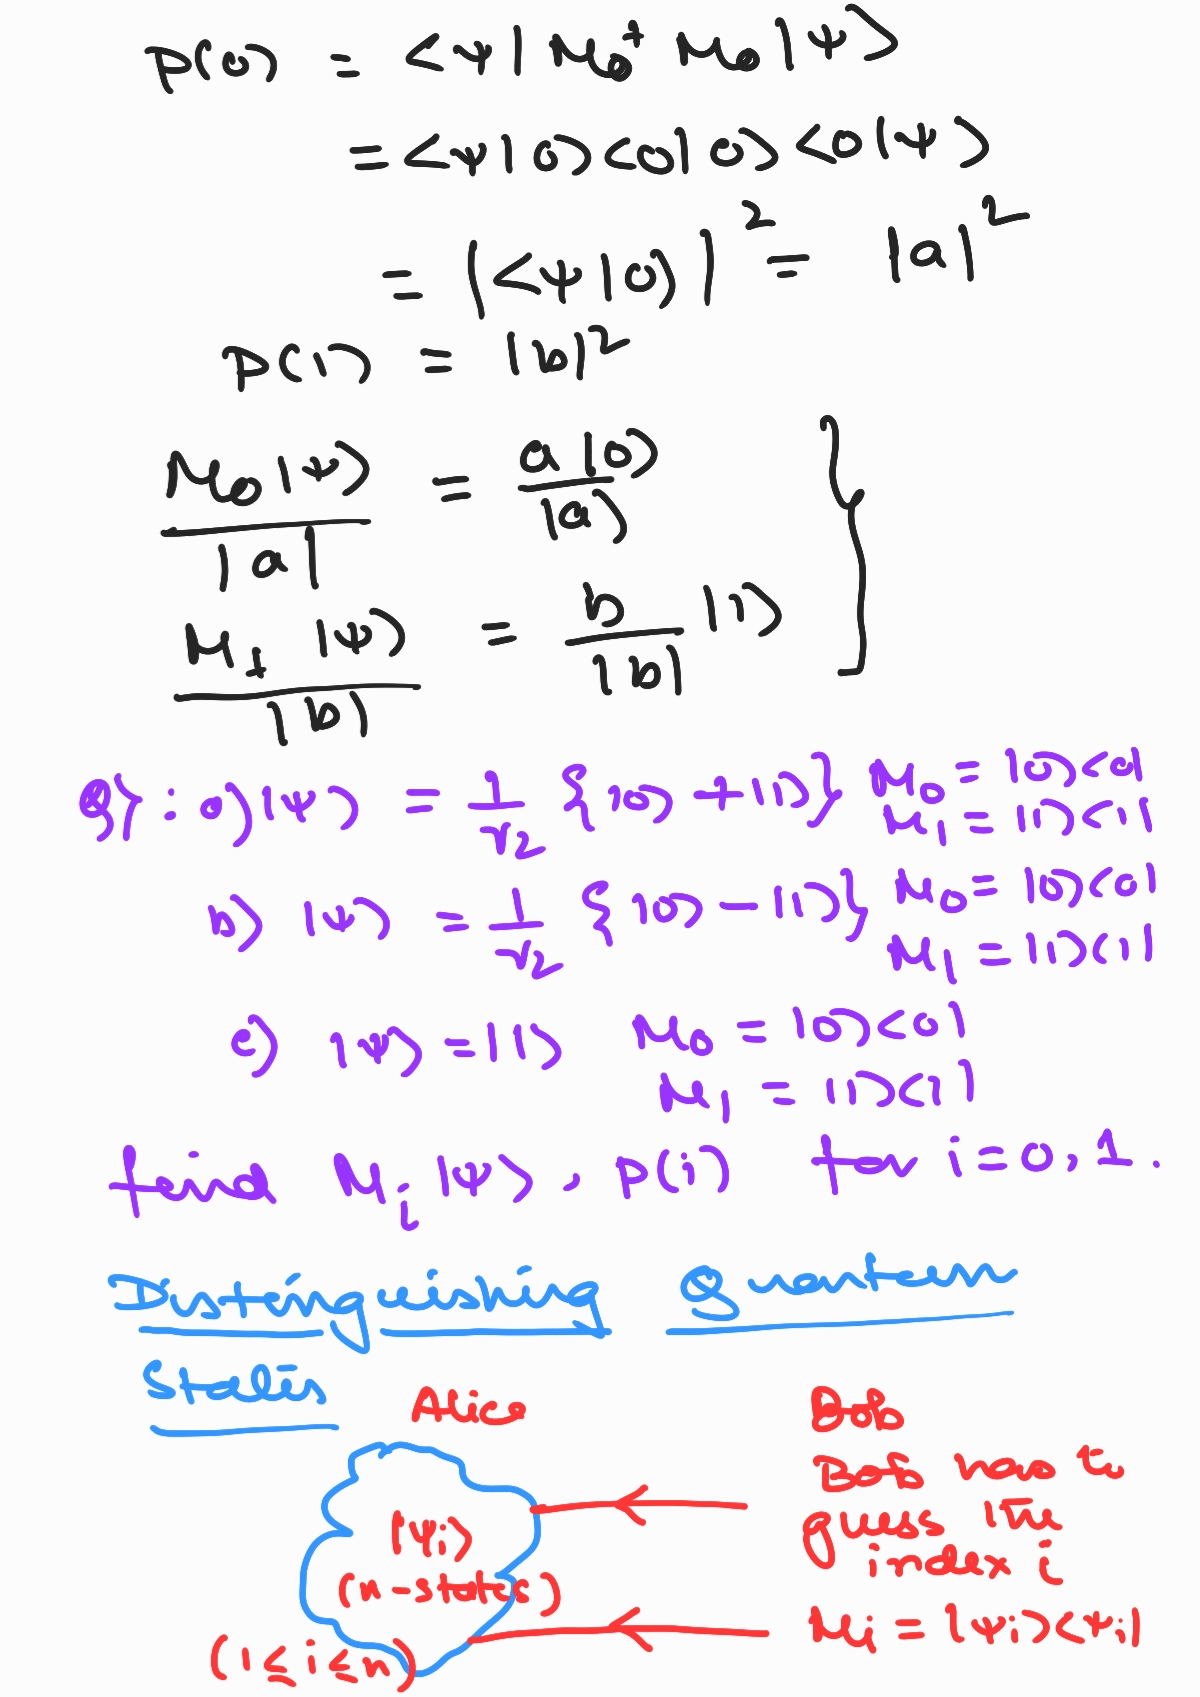 P(0) = <ψ| M₀† M₀ |ψ>
= <ψ|0><0|0><0|ψ>
= |<ψ|0>|² = |a|²
P(1) = |b|²
M₀|ψ> / |a| = a|0> / |a|
M₁|ψ> / |b| = b / |b| |1>
Q} : a) |ψ> = 1/√2 {|0> + |1>} M₀ = |0><0|
M₁ = |1><1|
b) |ψ> = 1/√2 {|0> - |1>} M₀ = |0><0|
M₁ = |1><1|
c) |ψ> = |1> M₀ = |0><0|
M₁ = |1><1|
find Mᵢ |ψ>, P(i) for i=0,1.
Distinguishing Quantum
States
Alice
|ψᵢ>
(n-states)
(1≤i≤n)
Bob
Bob has to
guess the
index i
Mᵢ = |ψᵢ><ψᵢ|